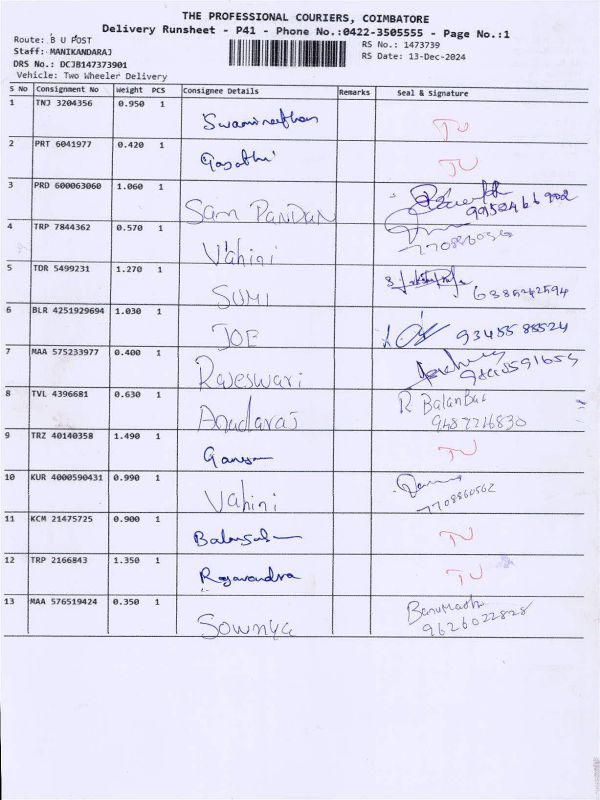 THE PROFESSIONAL COURIERS, COIMBATORE
Delivery Runsheet - P41 - Phone No.:0422-3505555 - Page No.:1
Route: B U POST
RS No.: 1473739
Staff: MANIKANDARAJ
RS Date: 13-Dec-2024
DRS No.: DCJB147373901
Vehicle: Two Wheeler Delivery
S No Consignment No Weight PCS Consignee Details Remarks Seal & Signature
1 TNJ 3204356 0.950 1 Swaminathan TU
2 PRT 6041977 0.420 1 Gayathi TU
3 PRD 600063060 1.060 1 Sam PANDIAN
4 TRP 7844362 0.570 1 Vahini
5 TDR 5499231 1.270 1 SUMI 6385242594
6 BLR 4251929694 1.030 1 JOE 9345588524
7 MAA 575233977 0.400 1 Rajeswari
8 TVL 4396681 0.630 1 R Balan
9487716830
9 TRZ 40140358 1.490 1 Ganesan TU
10 KUR 4000590431 0.990 1 Vahini
7708860562
11 KCM 21475725 0.900 1 TU
12 TRP 2166843 1.350 1 TU
13 MAA 576519424 0.350 1 Sowmya
9626022828